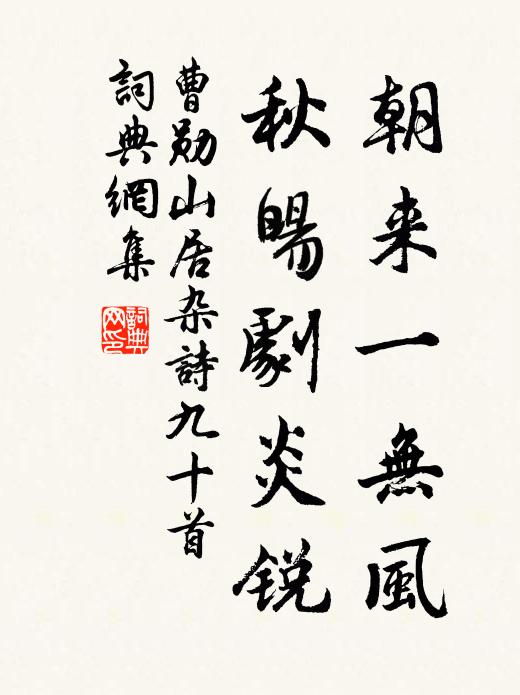 朝来一無風
秋暘劇炎鋭
曹勛山居杂詩九十首
詞典網集
詞典
网印